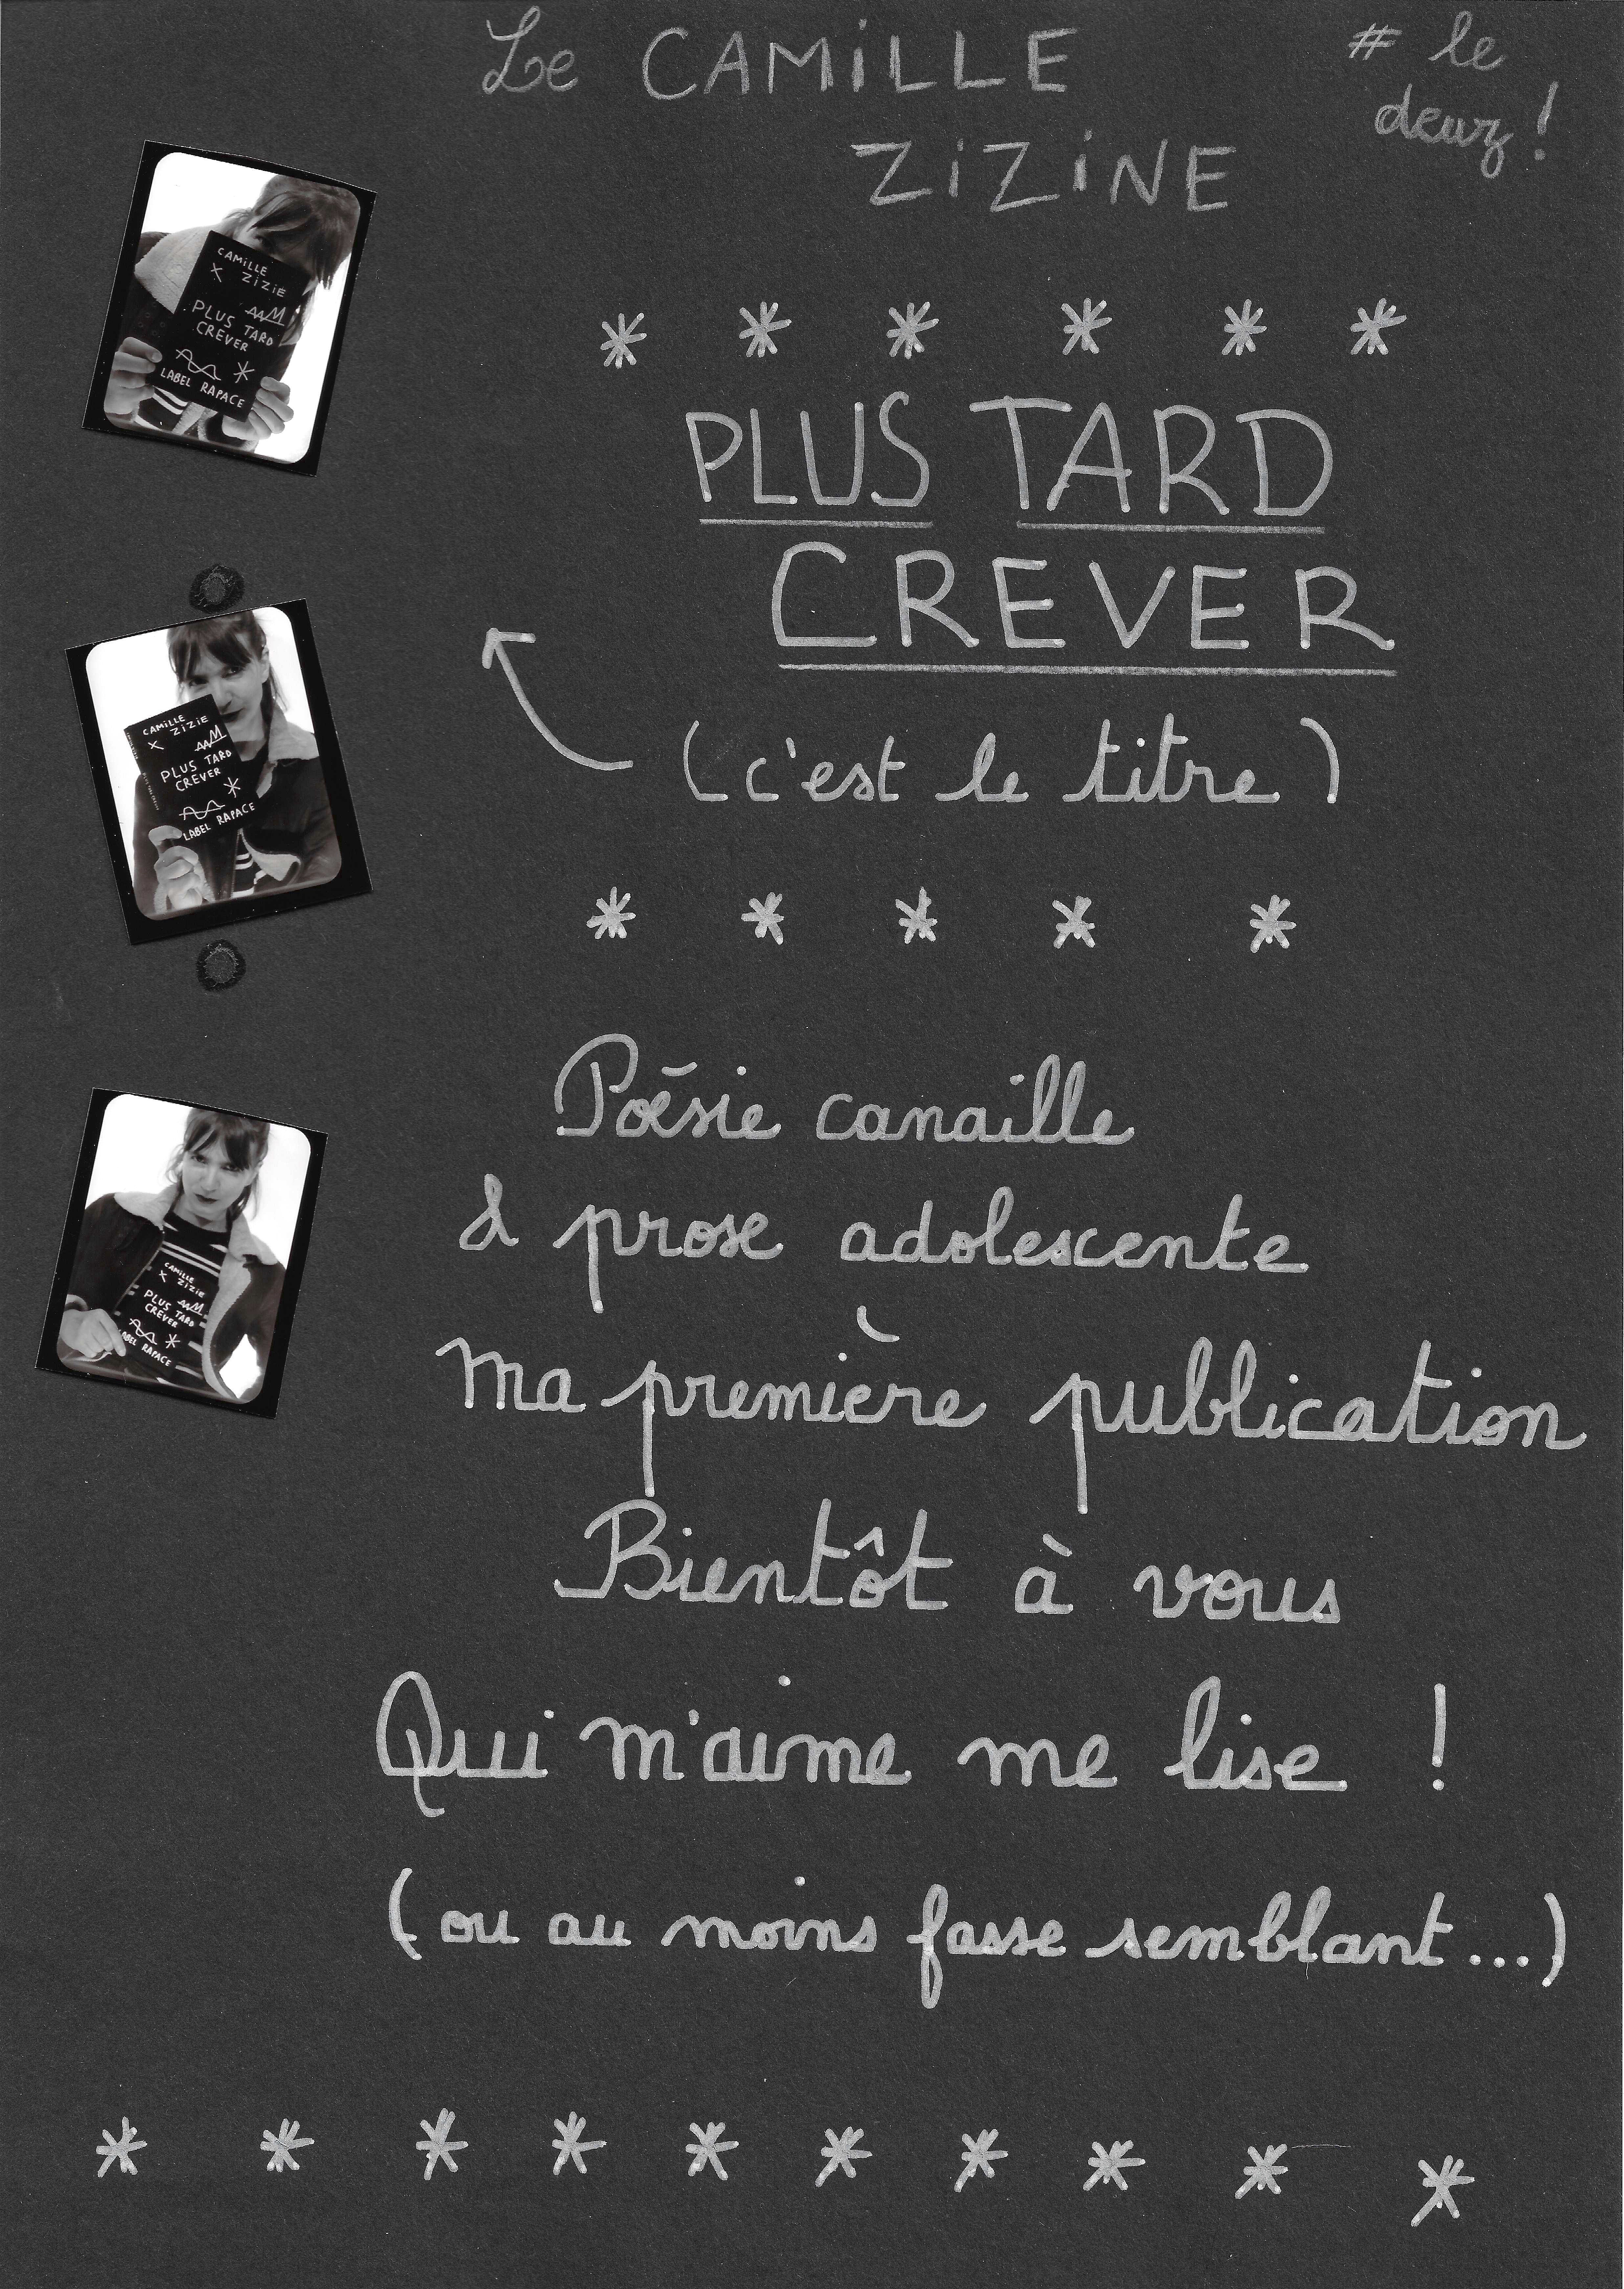 Le CAMiLLE
ZiZiNE
# le
deuz !
* * * * * *
PLUS TARD
CREVER
(c'est le titre)
* * * * *
Poésie canaille
& prose adolescente
ma première publication
Bientôt à vous
Qui m'aime me lise !
(ou au moins fasse semblant...)
* * * * * * * * * *
CAMiLLE
X ZiZiE
PLUS TARD
CREVER
*
LABEL RAPACE
CAMiLLE
X ZiZiE
PLUS TARD
CREVER
*
LABEL RAPACE
CAMiLLE
X ZiZiE
PLUS TARD
CREVER
*
ABEL RAPACE